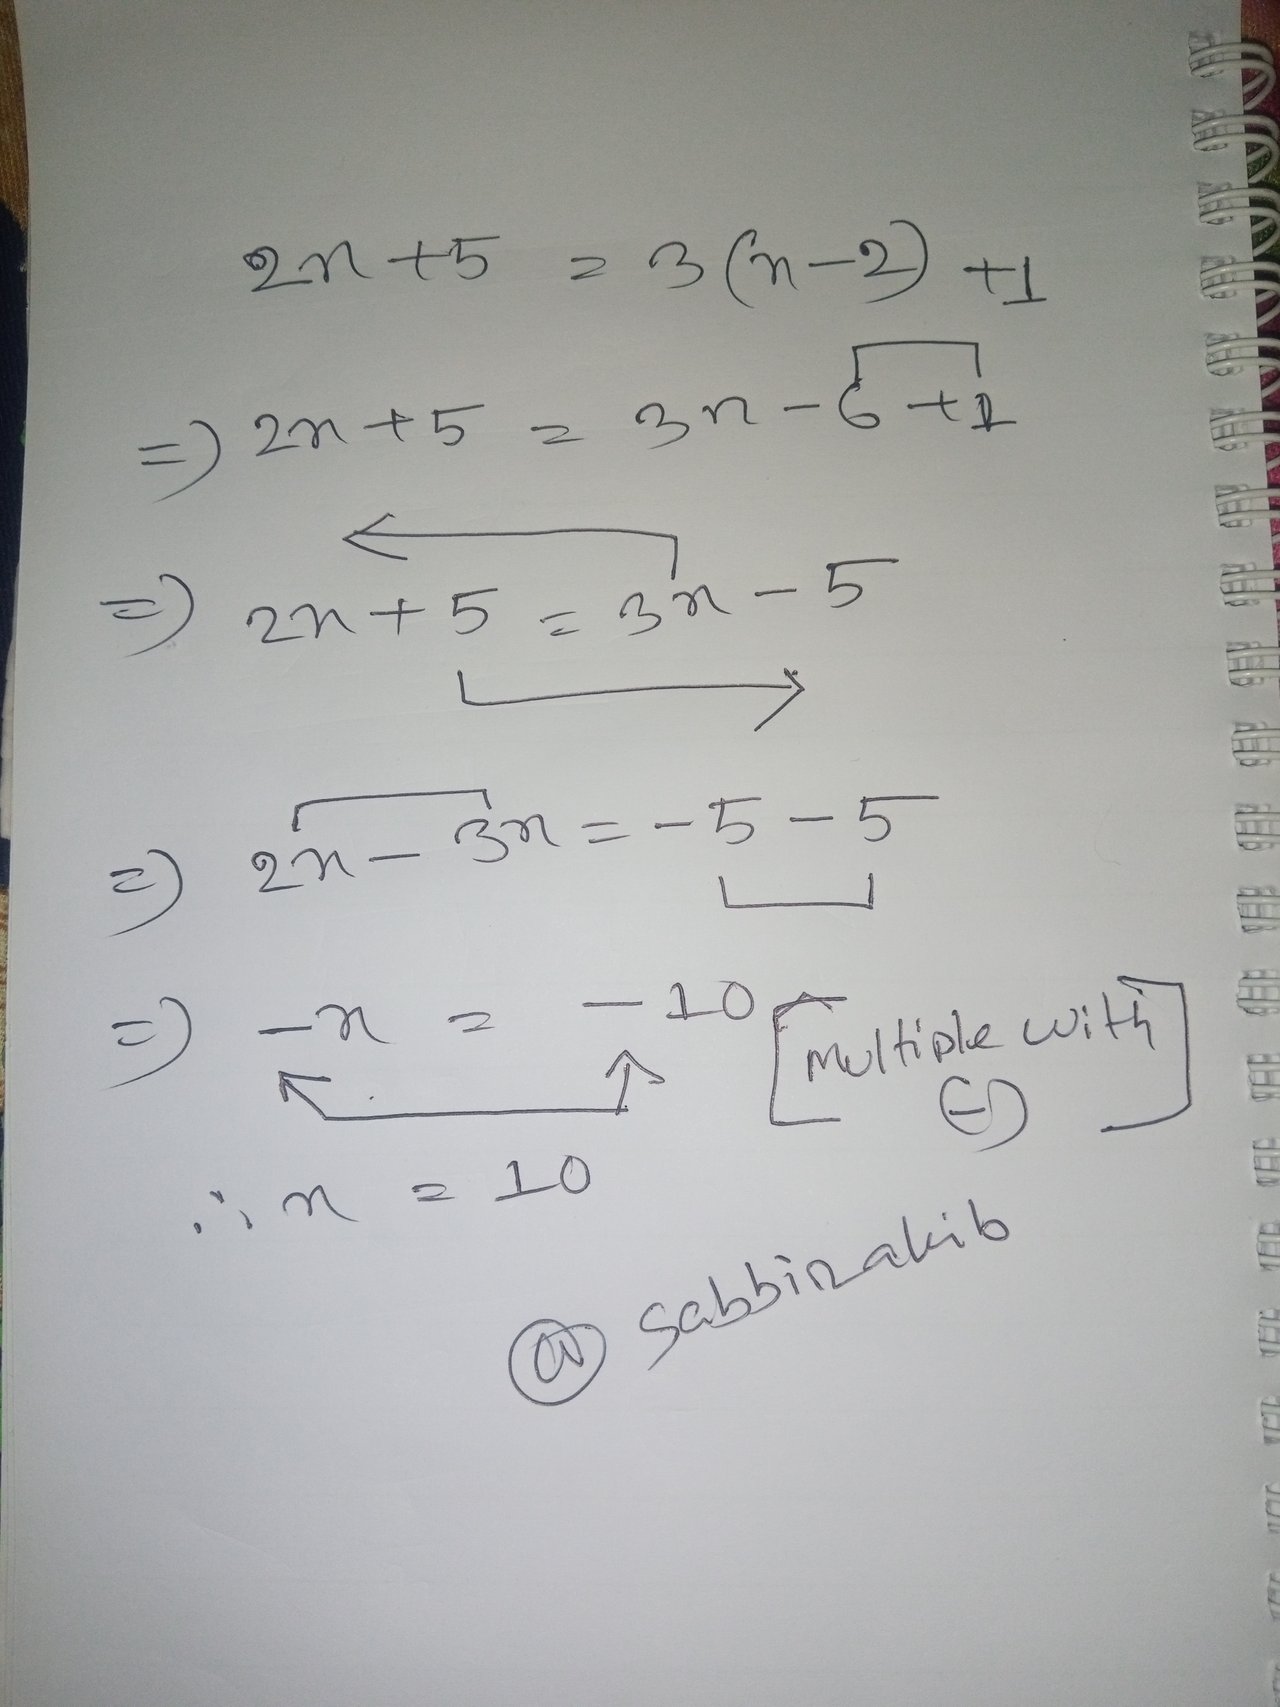 2x + 5 = 3(x - 2) + 1
=> 2x + 5 = 3x - 6 + 1
=> 2x + 5 = 3x - 5
=> 2x - 3x = - 5 - 5
=> -x = - 10 [Multiple with (-)]
∴ x = 10
@ sabbirakib